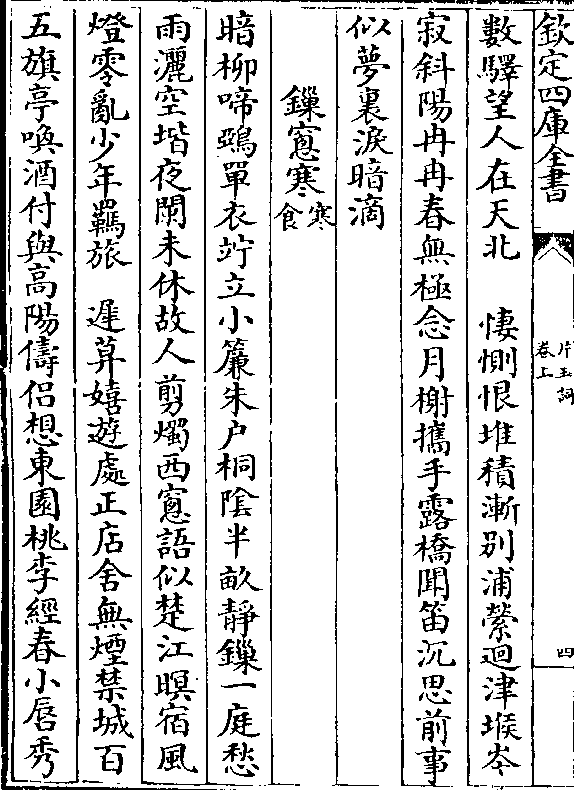 欽定四庫全書
片玉詞
卷上
四
數驛望人在天北　悽惻恨堆積漸別浦縈迴津堠岑
寂斜陽冉冉春無極念月榭攜手露橋聞笛沉思前事
似夢裏淚暗滴
鏁窻寒寒食
暗柳啼鴉單衣竚立小簾朱户桐陰半畝靜鏁一庭愁
雨灑空堦夜闌未休故人剪燭西窻語似楚江暝宿風
燈零亂少年羈旅　遲暮嬉遊處正店舍無煙禁城百
五旗亭喚酒付與高陽儔侣想東園桃李經春小唇秀